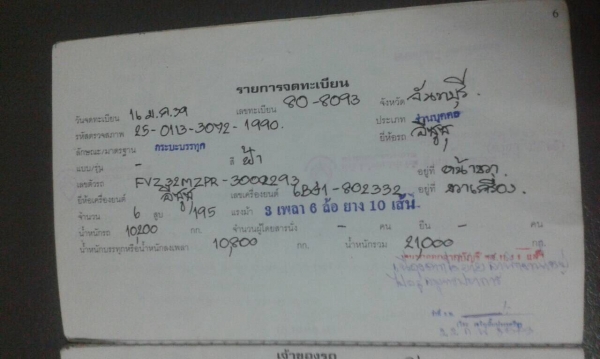 6
รายการจดทะเบียน
วันจดทะเบียน 16 ม.ค. 39 เลขทะเบียน 80-8093 จังหวัด จันทบุรี
รหัสตรวจสภาพ 25-0113-3072-1990. ประเภท ส่วนบุคคล
ลักษณะ/มาตรฐาน กระบะบรรทุก ยี่ห้อรถ อีซูซุ
แบบ/รุ่น - สี ฟ้า
เลขตัวรถ FVZ32MZPR-3000293 อยู่ที่ หน้าขวา
ยี่ห้อเครื่องยนต์ อีซูซุ เลขเครื่องยนต์ 6BG1-802332 อยู่ที่ ขวาเครื่อง
จำนวน 6 สูบ 195 แรงม้า 3 เพลา 6 ล้อ ยาง 10 เส้น
น้ำหนักรถ 10,200 กก. จำนวนผู้โดยสารนั่ง - คน ยืน - คน
น้ำหนักบรรทุกหรือน้ำหนักลงเพลา 10,800 กก. น้ำหนักรวม 21,000 กก.
เจ้าของรถ